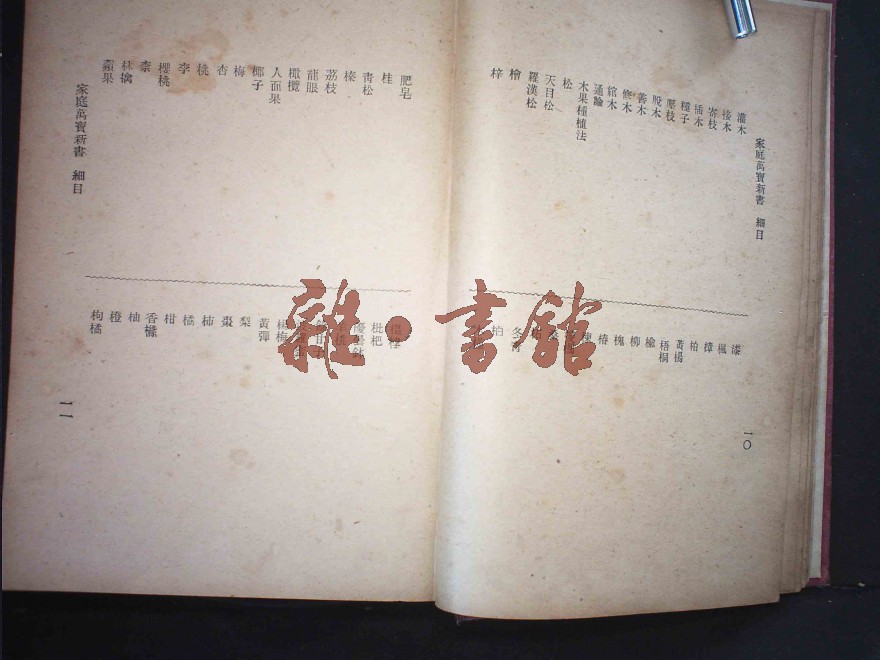 家庭萬寶新書 細目
灌木
接木
寄枝
插木
種子
壓枝
脫木
善木
修木
綰木
通論
木果種植法
松
天目松
羅漢松
檜
梓
漆
楓
樟
柏
黃楊
梧桐
榆
柳
槐
椿
冬青
柏
一〇
雜·書館
肥皂
桂
青松
榛
荔枝
龍眼
橄欖
人面果
椰子
梅
杏
桃
李
櫻桃
柰
林擒
蘋果
枇杷
楊梅
黃彈
梨
棗
柿
橘
柑
香櫞
柚
橙
枸橘
家庭萬寶新書 細目
一一